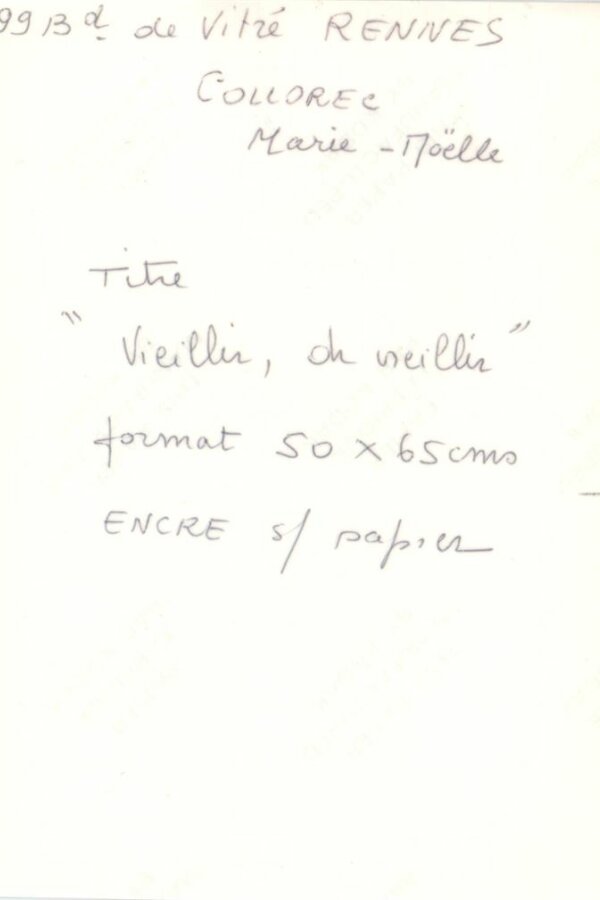 99 Bd de Vitré RENNES
COLLOREC
Marie-Noëlle
Titre
"Vieillir, oh vieillir"
format 50 x 65cms
ENCRE s/ papier